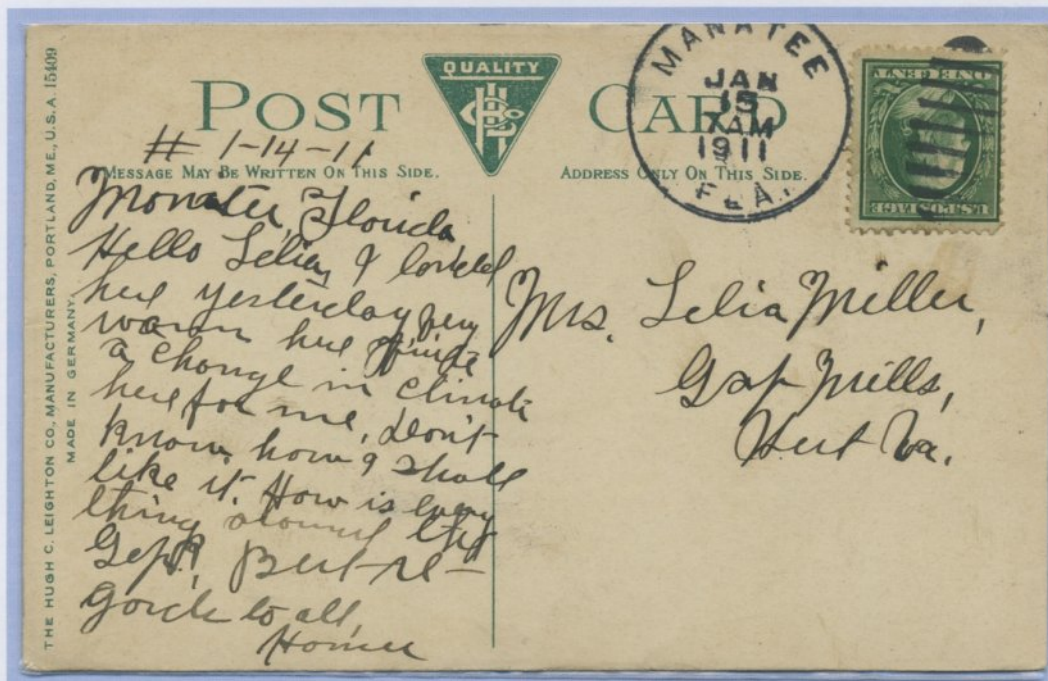 THE HUGH C. LEIGHTON CO., MANUFACTURERS, PORTLAND, ME., U.S.A. 15409
MADE IN GERMANY.
POST CARD
QUALITY
MANATEE
JAN
15
7 AM
1911
FLA.
ONE CENT
U.S. POSTAGE
# 1-14-11
MESSAGE MAY BE WRITTEN ON THIS SIDE.
ADDRESS ONLY ON THIS SIDE.
Manatee, Florida,
Hello Lelia, I landed
here yesterday very
warm here quite
a change in climate
here for me, don't
know how I shall
like it. How is every
thing around the
Gap?, Best re-
gards to all,
Homer
Mrs. Lelia Miller,
Gap Mills,
West Va.